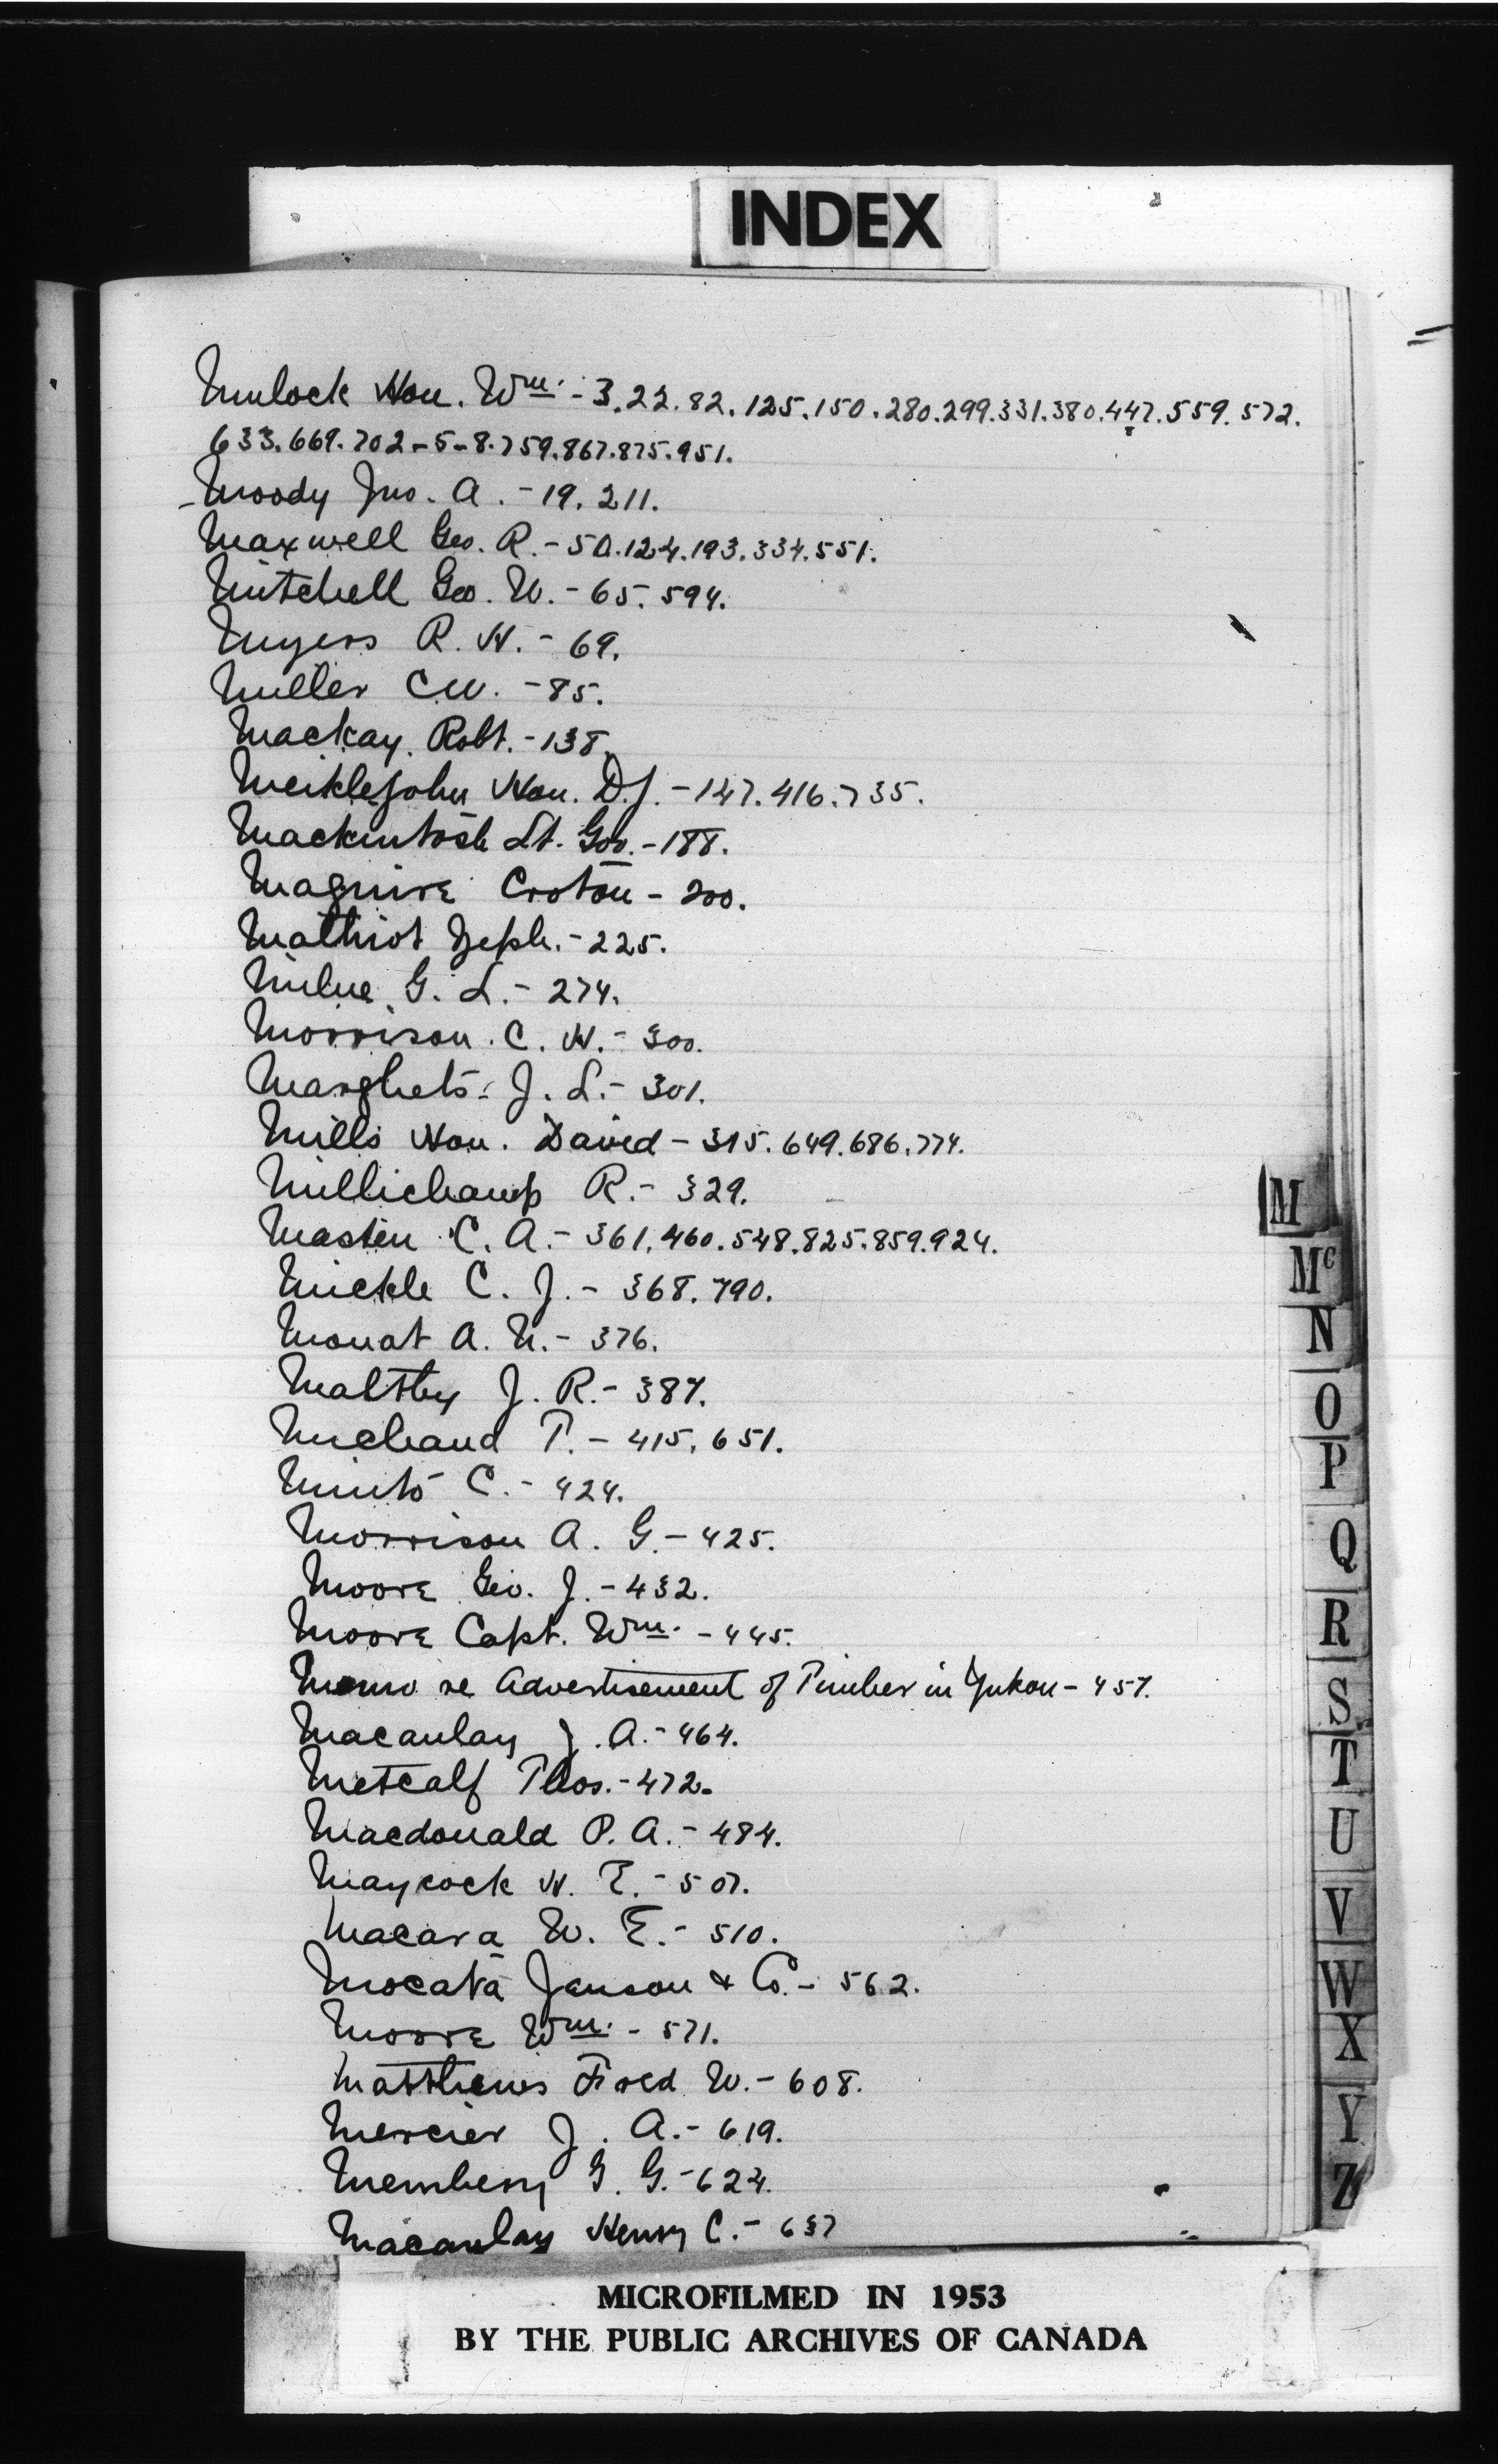 INDEX
Mulock Hon. Wm. - 3.22.82.125.150.280.299.331.380.447.559.572.
633.669.702-5-8.759.867.875.951.
Moody Jno. A. - 19. 211.
Maxwell Geo. R. - 50.124.193.334.551.
Mitchell Geo. W. - 65. 594.
Myers R. H. - 69.
Miller C W. - 85.
Mackay Robt. - 138.
Meiklejohn Hon. D.J. - 147.416.735.
Mackintosh Lt. Gov. - 188.
Maguire Croton - 200.
Mathiot Zeph. - 225.
Milne G. L. - 274.
Morrison C. H. - 300.
Marghets J. L. - 301.
Mills Hon. David - 315.649.686.774.
Millichamp R. - 329.
Masten C. A. - 361.460.548.825.859.924.
Mickle C. J. - 368.790.
Mouat A. N. - 376.
Maltby J. R. - 387.
Michaud P. - 415.651.
Minto C. - 424.
Morrison A. G. - 425.
Moore Geo. J. - 432.
Moore Capt. Wm. - 445.
Memo re Advertisement of Timber in Yukon - 457.
Macaulay J. A. - 464.
Metcalf Thos. - 472.
Macdonald P. A. - 484.
Maycock H. E. - 507.
Macara W. E. - 510.
Mocata Janson & Co. - 562.
Moore Wm. - 571.
Matthews Fred W. - 608.
Mercier J. A. - 619.
Membery G. G. - 624.
Macaulay Henry C. - 637
M
Mc
N
O
P
Q
R
S
T
U
V
W
X
Y
Z
MICROFILMED IN 1953
BY THE PUBLIC ARCHIVES OF CANADA